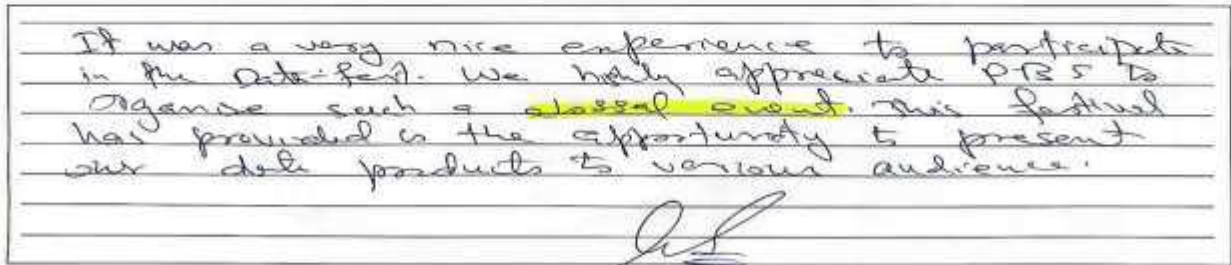 It was a very nice experience to participate
in the Data-fest. We highly appreciate PBS to
Organise such a colossal event. This festival
has provided us the opportunity to present
our data products to various audience.